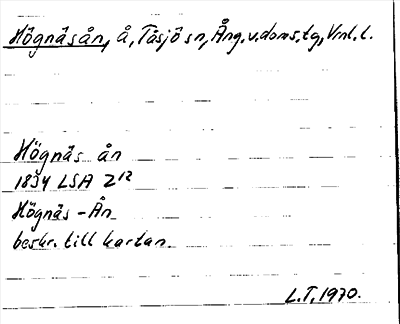 Högnäsån, å, Tåsjö sn, Ång. v. doms. tg, Vml. l.
Högnäs ån
1834 LSA Z¹²
Högnäs-Ån
beskr. till kartan.
L.T. 1970.